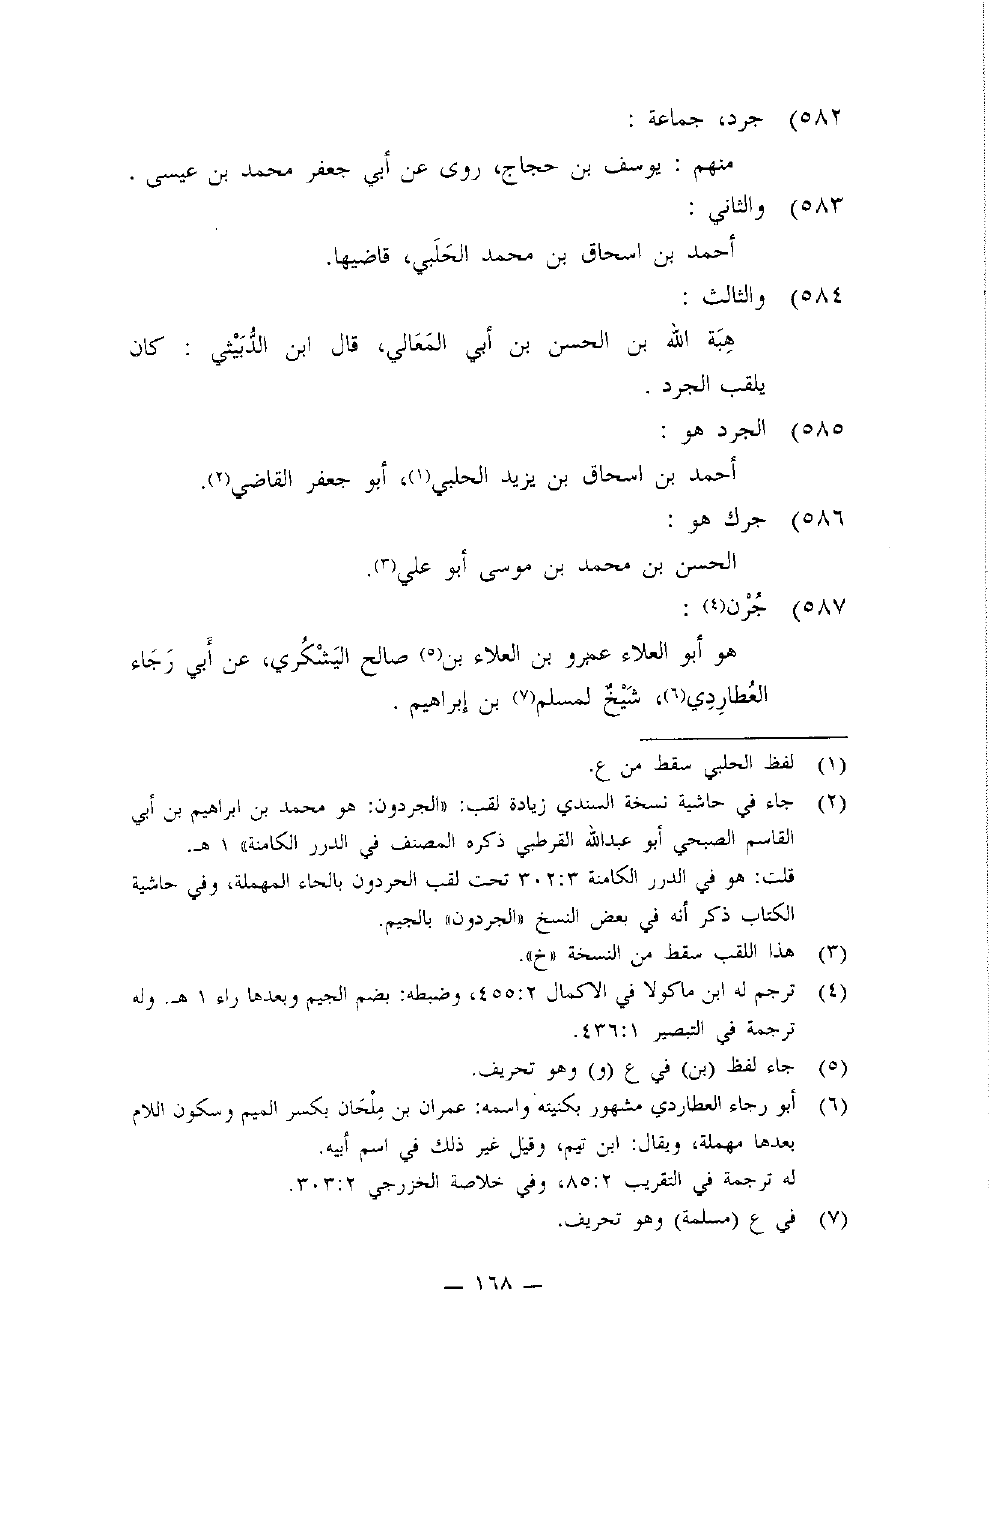 ٥٨٢) جرد، جماعة :
منهم : يوسف بن حجاج، روى عن أبي جعفر محمد بن عيسى .
٥٨٣) والثاني :
أحمد بن اسحاق بن محمد الحَلَبي، قاضيها.
٥٨٤) والثالث :
هِبَة الله بن الحسن بن أبي المَعَالي، قال ابن الدُّبَيْثي : كان
يلقب الجرد .
٥٨٥) الجرد هو :
أحمد بن اسحاق بن يزيد الحلبي(١)، أبو جعفر القاضي(٢).
٥٨٦) جرك هو :
الحسن بن محمد بن موسى أبو علي(٣).
٥٨٧) جُرْن(٤) :
هو أبو العلاء عمرو بن العلاء بن(٥) صالح اليَشْكُري، عن أَبي رَجَاء
العُطارِدِي(٦)، شَيْخٌ لمسلم(٧) بن إبراهيم .
(١) لفظ الحلبي سقط من ع.
(٢) جاء في حاشية نسخة السندي زيادة لقب: «الجردون: هو محمد بن ابراهيم بن أبي
القاسم الصبحي أبو عبدالله القرطبي ذكره المصنف في الدرر الكامنة» ١ هـ.
قلت: هو في الدرر الكامنة ٣٠٢:٣ تحت لقب الحردون بالحاء المهملة، وفي حاشية
الكتاب ذكر أنه في بعض النسخ «الجردون» بالجيم.
(٣) هذا اللقب سقط من النسخة «خ».
(٤) ترجم له ابن ماكولا في الاكمال ٤٥٥:٢، وضبطه: بضم الجيم وبعدها راء ١ هـ. وله
ترجمة في التبصير ٤٣٦:١.
(٥) جاء لفظ (بن) في ع (و) وهو تحريف.
(٦) أبو رجاء العطاردي مشهور بكنيته واسمه: عمران بن مِلْحَان بكسر الميم وسكون اللام
بعدها مهملة، ويقال: ابن تيم، وقيل غير ذلك في اسم أبيه.
له ترجمة في التقريب ٨٥:٢، وفي خلاصة الخزرجي ٣٠٣:٢.
(٧) في ع (مسلمة) وهو تحريف.
— ١٦٨ —